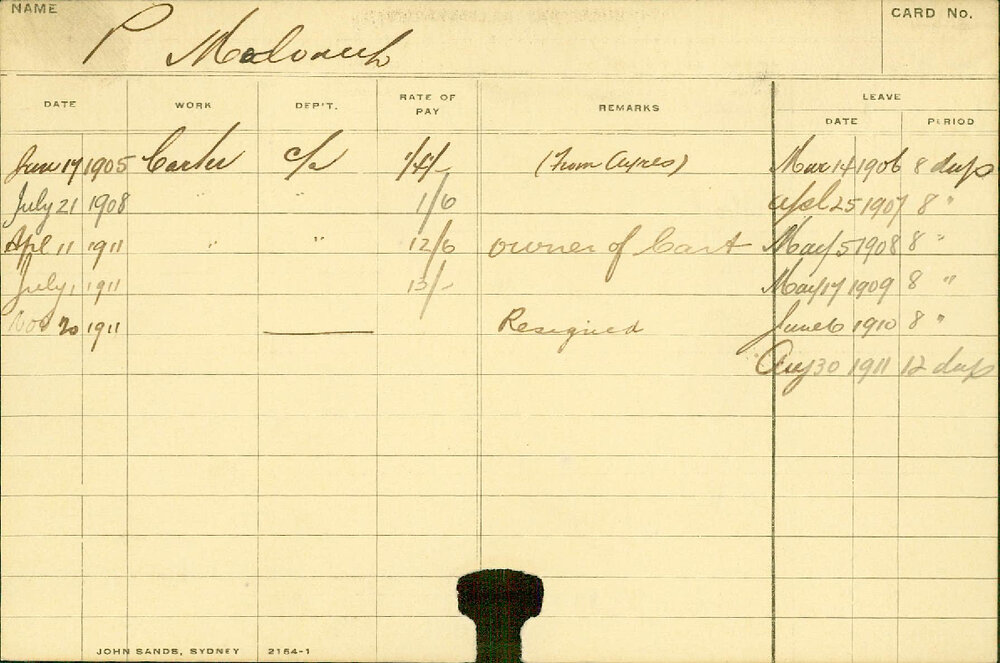 NAME
CARD No.
P
DATE WORK DEP'T. RATE OF PAY REMARKS LEAVE
DATE PERIOD
17 1905 Carter c/a (from Ayres) Mar 14 1906 8 days
July 21 1908 " " 1/6 Apl 25 1907 8 "
Apl 11 1911 " " 12/6 owner of Cart May 5 1908 8 "
July 1 1911 13/- May 17 1909 8 "
Nov 20 1911 Resigned June 6 1910 8 "
Aug 30 1911 12 days
JOHN SANDS, SYDNEY 2154-1